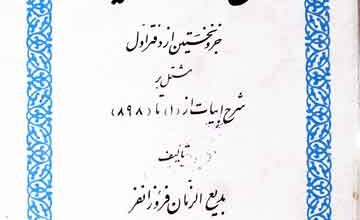 جزو نخستین از دفتر اول
مشتمل بر
شرح ابیات از (۱) تا (۸۹۸)
تألیف
بدیع الزمان فروزانفر